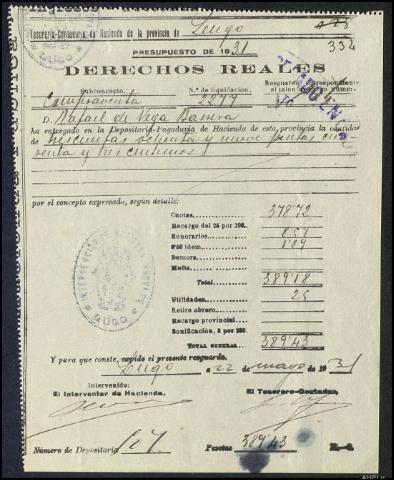 Tesorería-Contaduría de Hacienda de la provincia de Lugo
PRESUPUESTO DE 1931 334
DERECHOS REALES
Subconcepto. N.º de liquidación. Resguardo correspondiente
al talón número
Compraventa 2279
D. Rafael de Vega Barrera
ha entregado en la Depositaría-Pagaduría de Hacienda de esta provincia la cantidad
de trescientas ochenta y nueve pesetas cua
renta y tres céntimos
por el concepto expresado, según detalle:
Cuotas 378'72
Recargo del 25 por 100.
Honorarios
0'50 ídem 1'89
Demora
Multa
Total 389'18
Utilidades 25
Retiro obrero
Recargo provincial
Bonificación, 3 por 100.
TOTAL GENERAL 389'43
Y para que conste, expido el presente resguardo.
Lugo a 22 de mayo de 1931
Intervenido:
El Interventor de Hacienda, El Tesorero-Contador,
Número de Depositaría 107 Pesetas 389'43
LUGO